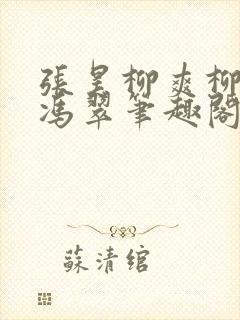 張昊柳爽柳
馮翠筆趣閣
蘇清綰